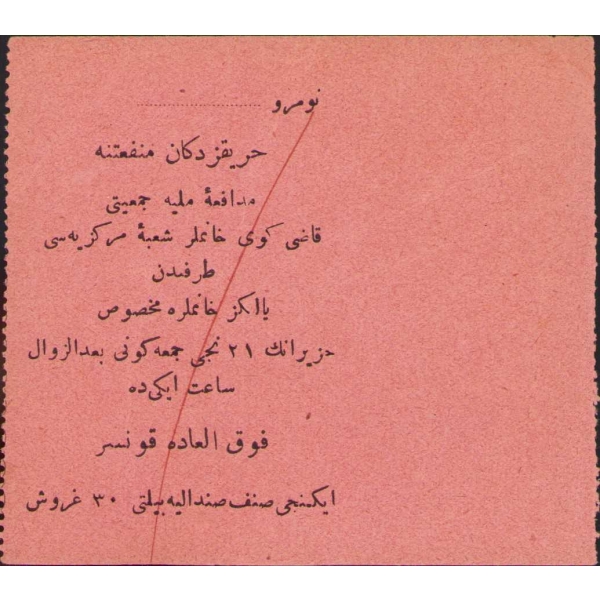 نومرو ..............................
حريقزدكان منفعتنه
مدافعهٔ مليه جمعيتى
قاضى كوى خانملر شعبهٔ مركزيه سى
طرفندن
يالكز خانملره مخصوص
حزيرانك ٢١ نجى جمعه كونى بعدالزوال
ساعت ايكى ده
فوق العاده قونسر
ايكنجى صنف صنداليه بيلتى ٣٠ غروش